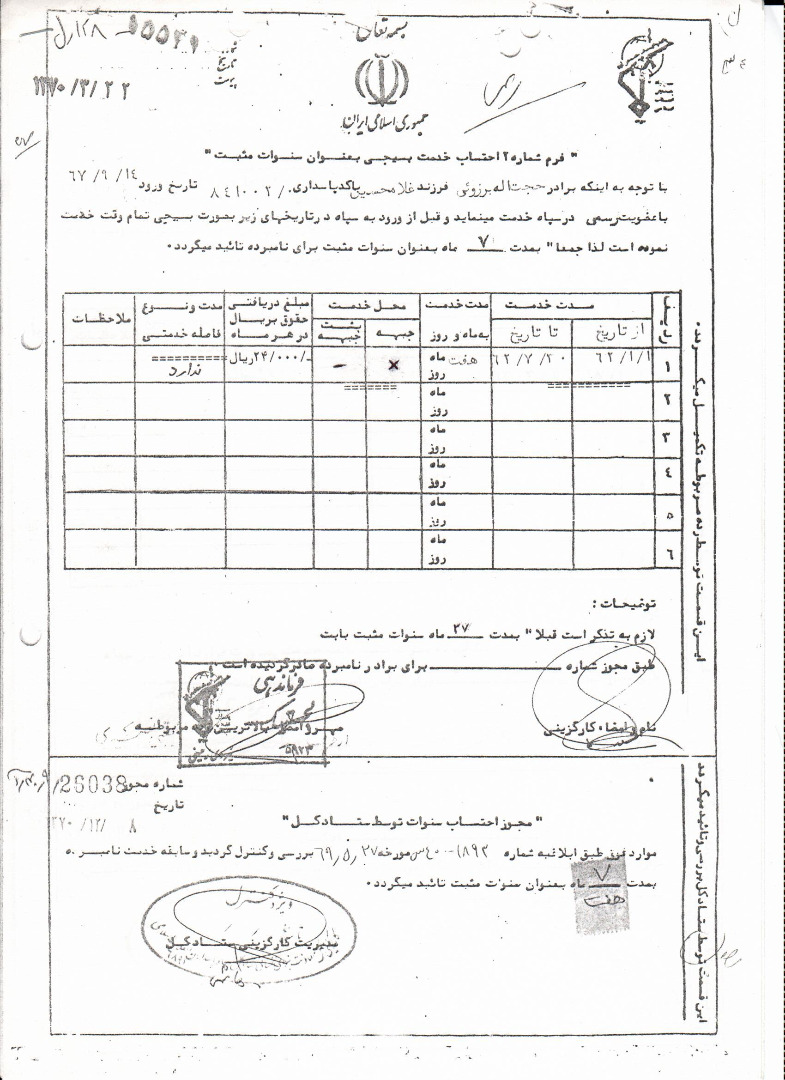 بسمه تعالی
جمهوری اسلامی ایران
شماره
۵۵۵۴۹
تاریخ
۱۳۷۰/۳/۲۲
پیوست
" فرم شماره ۲ احتساب خدمت بسیجی بعنوان سنوات مثبت "
با توجه به اینکه برادر حجت اله برزوئی فرزند غلامحسین باکد پاسداری ۸۴۱۰۰۲/ تاریخ ورود ۶۷/۹/۱۴
با عضویت رسمی در سپاه خدمت مینماید و قبل از ورود به سپاه در تاریخهای زیر بصورت بسیجی تمام وقت خدمت
نموده است لذا جمعا" بمدت ۷ ماه بعنوان سنوات مثبت برای نامبرده تائید میگردد.
ردیف مدت خدمت مدت خدمت محل خدمت مبلغ دریافتی مدت و نوع ملاحظات
از تاریخ تا تاریخ به ماه و روز جبهه پشت جبهه حقوق بریال در هر ماه فاصله خدمتی
۱ ۶۲/۱/۱ ۶۲/۷/۳۰ هفت ماه روز × - ۲۴/۰۰۰/- ریال ندارد
۲ ماه روز
۳ ماه روز
۴ ماه روز
۵ ماه روز
۶ ماه روز
توضیحات :
لازم به تذکر است قبلا" بمدت ۲۷ ماه سنوات مثبت بابت
طبق مجوز شماره برای برادر نامبرده صادر گردیده است
نام و امضاء کارگزینی
مهر و امضاء بالاترین رده مربوطه
فرماندهی
این قسمت توسط رده مربوطه تکمیل میگردد.
شماره مجوز 26038/
تاریخ
۳۷۰/۱۲/ ۸
" مجوز احتساب سنوات توسط ستاد کل "
موارد فوق طبق ابلاغیه شماره مورخه ۶۹/۵/۲۷ بررسی و کنترل گردید و سابقه خدمت نامبرده
بمدت ۷ ماه بعنوان سنوات مثبت تائید میگردد.
هفت
مدیریت کارگزینی ستاد کل
این قسمت توسط ستاد کل بررسی و تائید میگردد